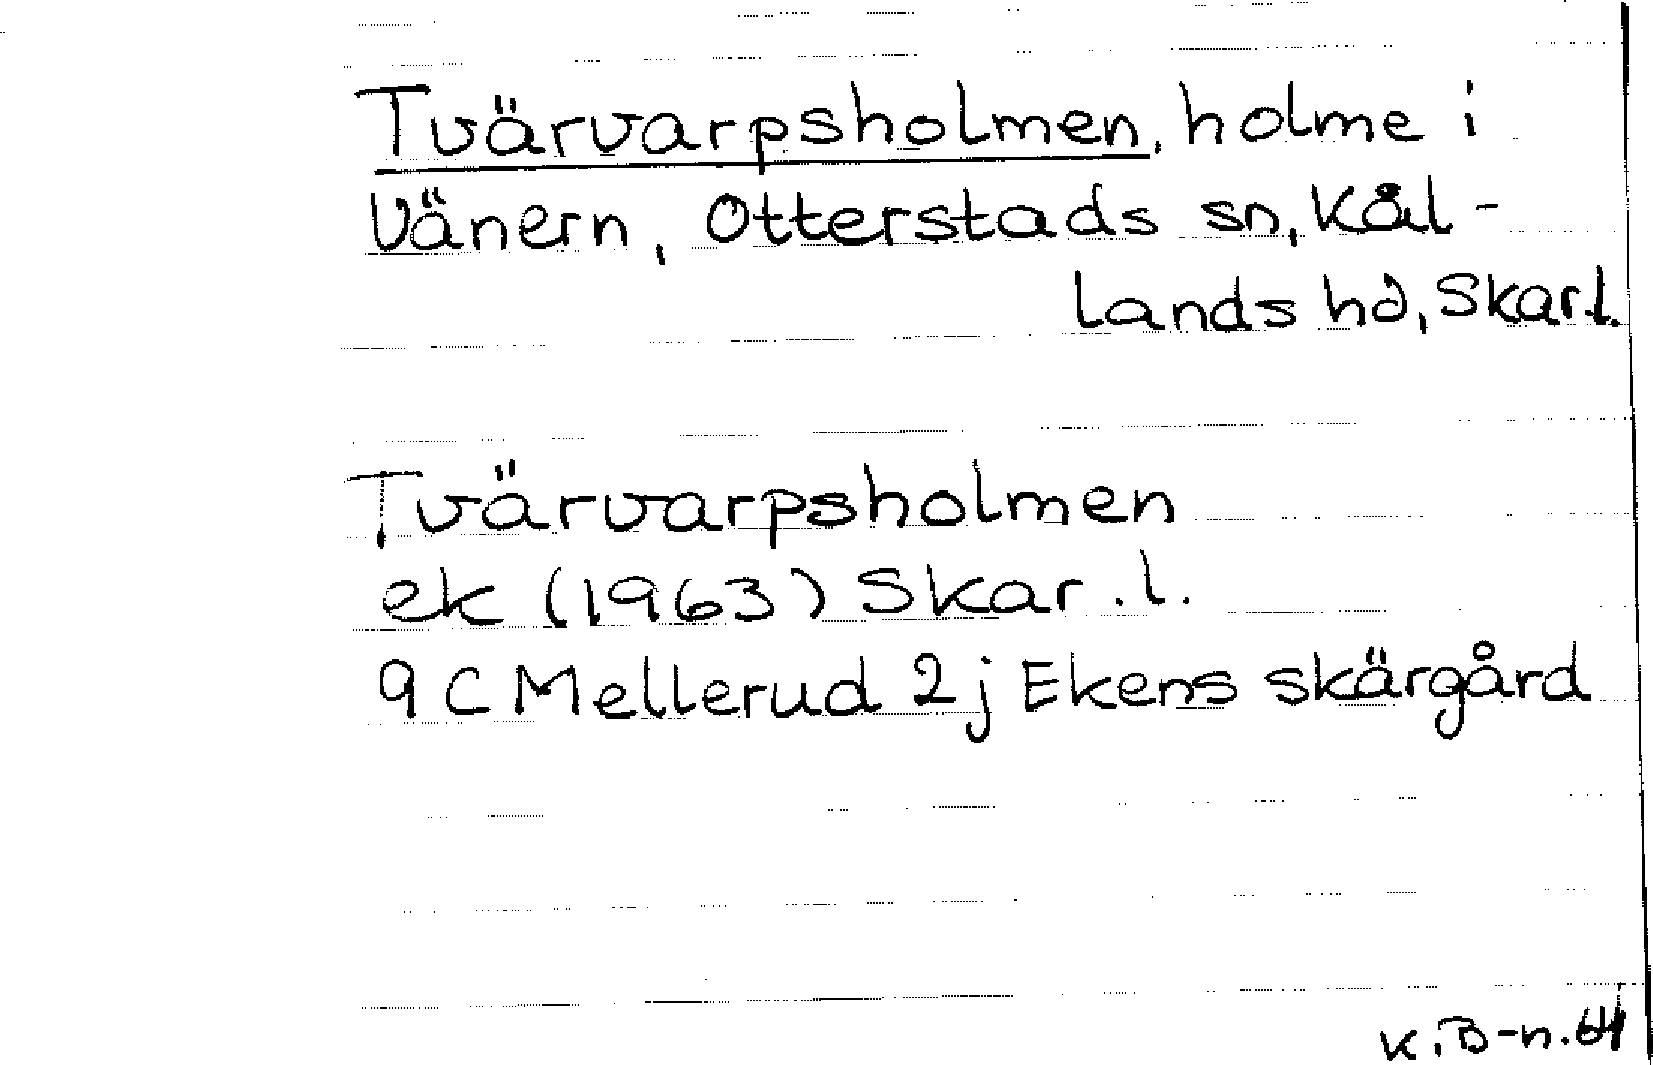 Tvärvarpsholmen, holme i
Vänern, Otterstads sn, Kål-
lands hd, Skar.l.
Tvärvarpsholmen
ek (1963) Skar.l.
9 C Mellerud 2j Ekens skärgård
K.B-n.64